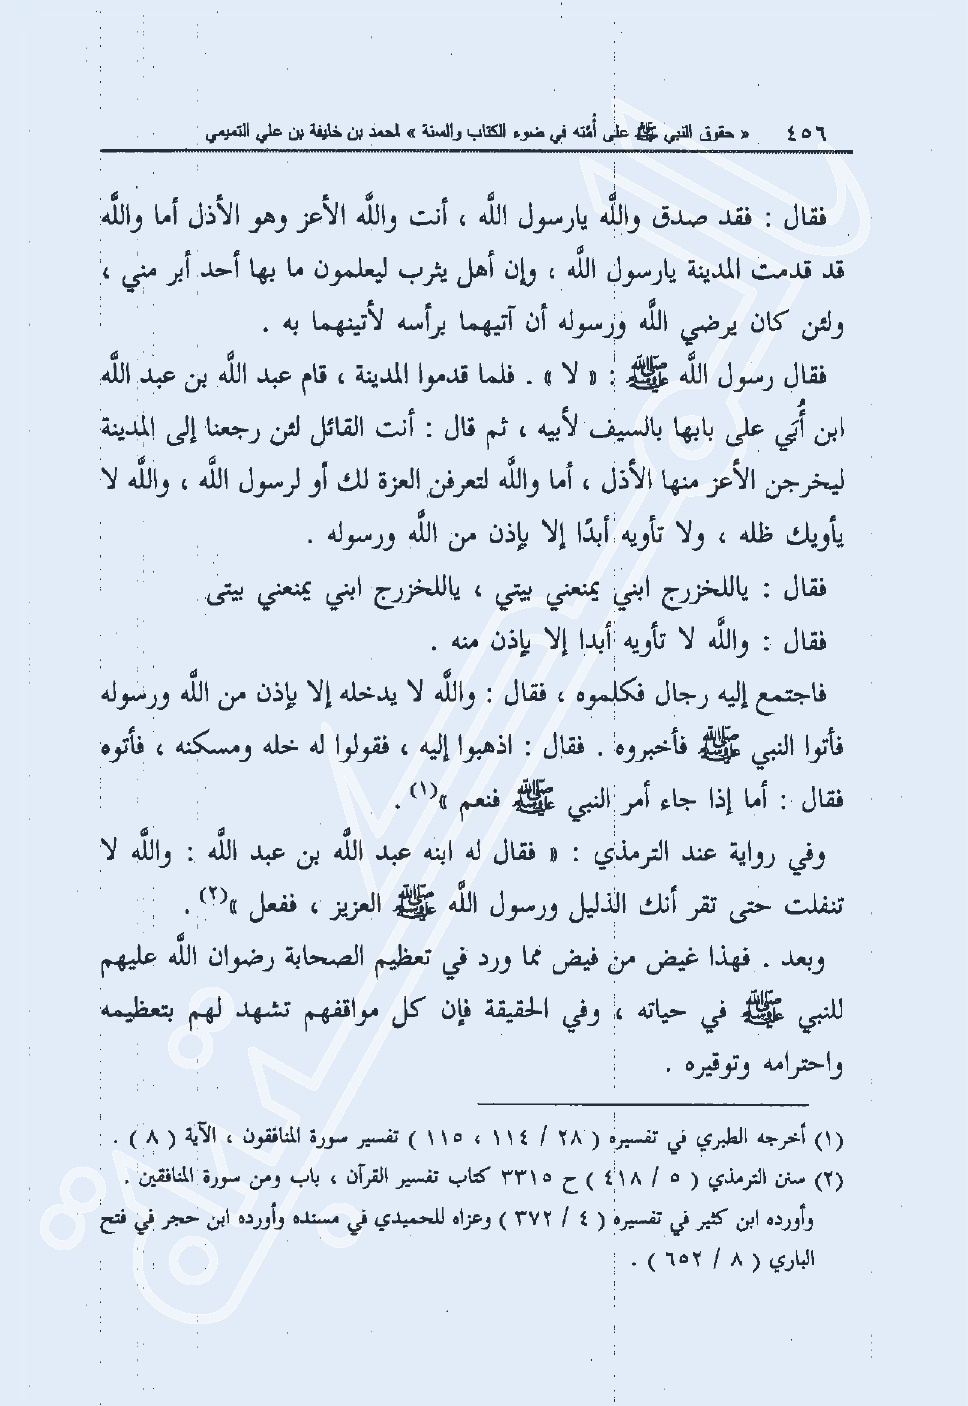 ٤٥٦ « حقوق النبي ﷺ على أُمَّته في ضوء الكتاب والسنة » لمحمد بن خليفة بن علي التميمي
فقال : فقد صدق واللَّه يارسول اللَّه ، أنت واللَّه الأعز وهو الأذل أما واللَّه
قد قدمت المدينة يارسول اللَّه ، وإن أهل يثرب ليعلمون ما بها أحد أبر مني ،
ولئن كان يرضي اللَّه ورسوله أن آتيهما برأسه لأتينهما به .
فقال رسول اللَّه ﷺ : « لا » . فلما قدموا المدينة ، قام عبد اللَّه بن عبد اللَّه
ابن أُبَي على بابها بالسيف لأبيه ، ثم قال : أنت القائل لئن رجعنا إلى المدينة
ليخرجن الأعز منها الأذل ، أما واللَّه لتعرفن العزة لك أو لرسول اللَّه ، واللَّه لا
يأويك ظله ، ولا تأويه أبدًا إلا بإذن من اللَّه ورسوله .
فقال : ياللخزرج ابني يمنعني بيتي ، ياللخزرج ابني يمنعني بيتى
فقال : واللَّه لا تأويه أبدا إلا بإذن منه .
فاجتمع إليه رجال فكلموه ، فقال : واللَّه لا يدخله إلا بإذن من اللَّه ورسوله
فأتوا النبي ﷺ فأخبروه . فقال : اذهبوا إليه ، فقولوا له خله ومسكنه ، فأتوه
فقال : أما إذا جاء أمر النبي ﷺ فنعم »(١) .
وفي رواية عند الترمذي : « فقال له ابنه عبد اللَّه بن عبد اللَّه : واللَّه لا
تنفلت حتى تقر أنك الذليل ورسول اللَّه ﷺ العزيز ، ففعل »(٢) .
وبعد . فهذا غيض من فيض مما ورد في تعظيم الصحابة رضوان اللَّه عليهم
للنبي ﷺ في حياته ، وفي الحقيقة فإن كل مواقفهم تشهد لهم بتعظيمه
واحترامه وتوقيره .
(١) أخرجه الطبري في تفسيره ( ٢٨ / ١١٤ ، ١١٥ ) تفسير سورة المنافقون ، الآية ( ٨ ) .
(٢) سنن الترمذي ( ٥ / ٤١٨ ) ح ٣٣١٥ كتاب تفسير القرآن ، باب ومن سورة المنافقين .
وأورده ابن كثير في تفسيره ( ٤ / ٣٧٢ ) وعزاه للحميدي في مسنده وأورده ابن حجر في فتح
الباري ( ٨ / ٦٥٢ ) .